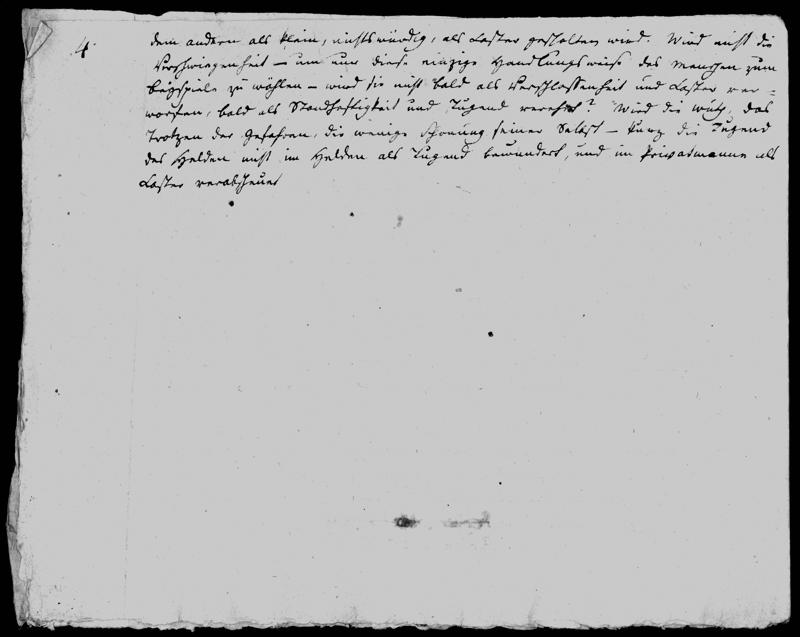 4.
dem andern als klein, nichtswürdig, als Laster gescholten wird. Wird nicht die
Verschwiegenheit – um nur diese einzige Handlungsweise des Menschen zum
beyspiele zu wählen – wird sie nicht bald als Verschlossenheit und Laster ver=
worfen, bald als Standhaftigkeit und Tugend verehrt? Wird die wuth, das
Trotzen der Gefahren, die wenige Schonung seiner Selbst – kurz die Tugend
des Helden nicht im Helden als Tugend bewundert, und im Privatmanne als
Laster verabscheuet